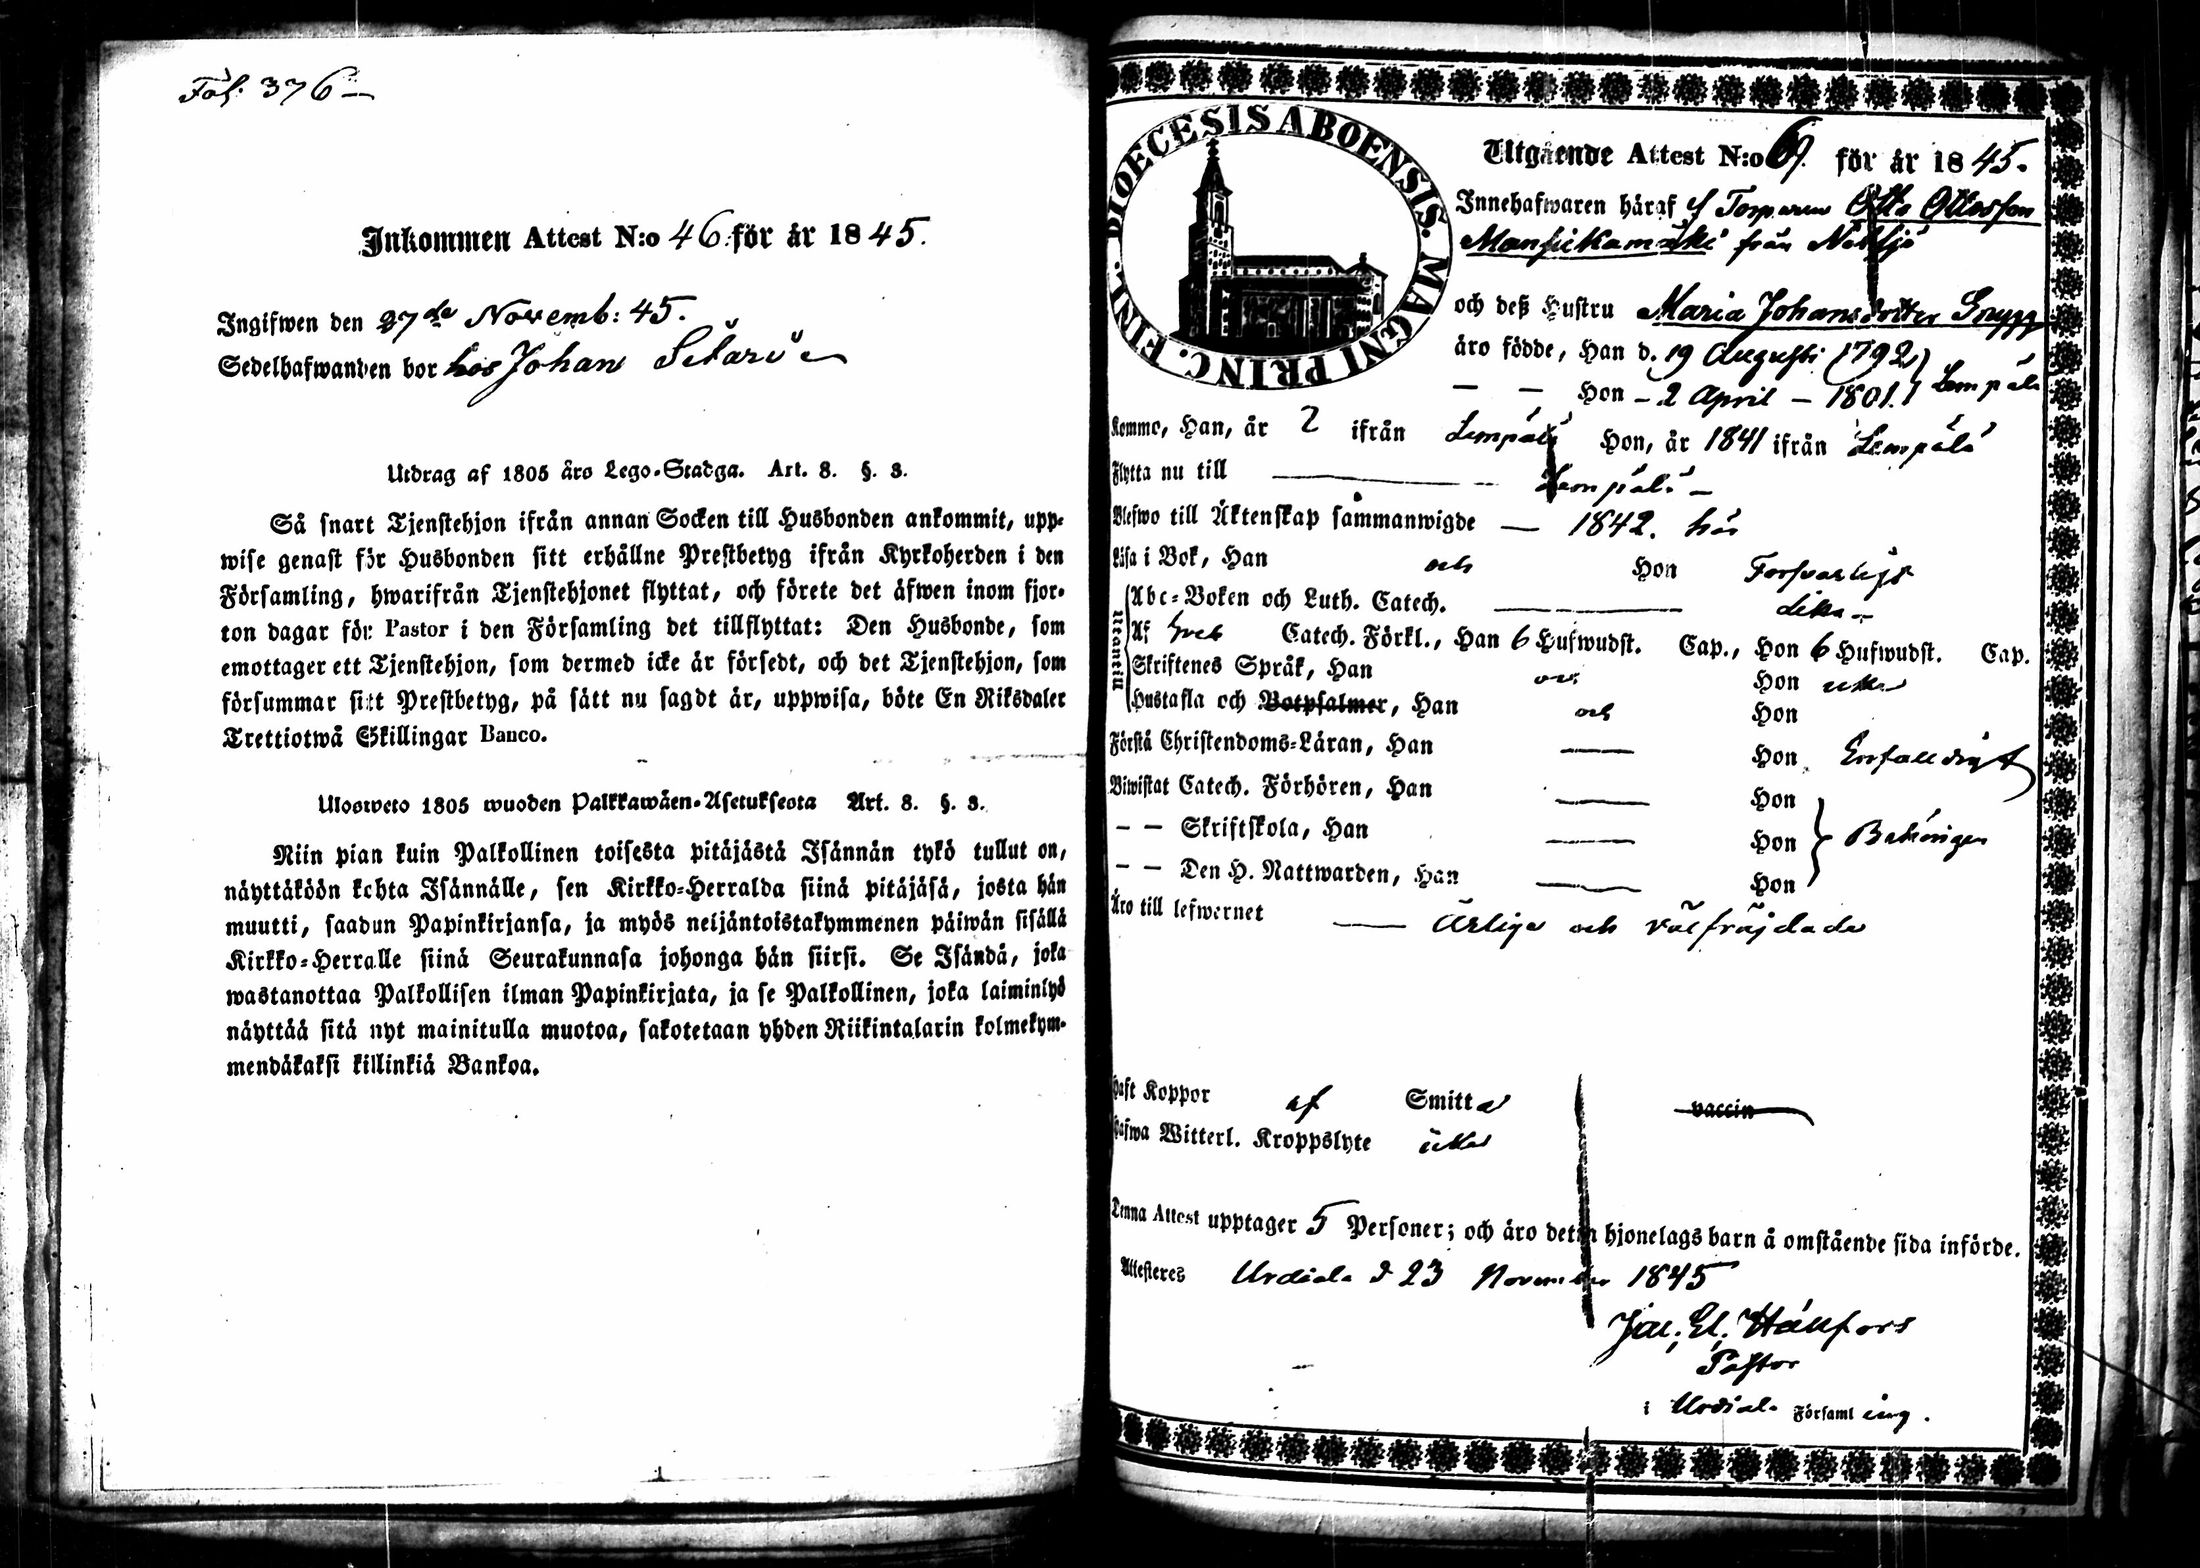 Fol. 376 —
Inkommen Attest N:o 46. för år 1845.
Ingifwen den 27de Novemb: 45.
Sedelhafwanden bor hos Johan
Utdrag af 1805 års Lego-Stadga. Art. 8. §. 3.
Så snart Tjenstehjon ifrån annan Socken till Husbonden ankommit, upp-
wise genast för Husbonden sitt erhållne Prestbetyg ifrån Kyrkoherden i den
Församling, hwarifrån Tjenstehjonet flyttat, och förete det äfwen inom fjor-
ton dagar för Pastor i den Församling det tillflyttat: Den Husbonde, som
emottager ett Tjenstehjon, som dermed icke är försedt, och det Tjenstehjon, som
försummar sitt Prestbetyg, på sätt nu sagdt är, uppwisa, böte En Riksdaler
Trettiotwå Skillingar Banco.
Ulosweto 1805 wuoden Palkkawäen-Asetuksesta Art. 8. §. 3.
Niin pian kuin Palkollinen toisesta pitäjästä Isännän tykö tullut on,
näyttäköön kohta Isännälle, sen Kirkko-Herralda siinä pitäjäsä, josta hän
muutti, saadun Papinkirjansa, ja myös neljäntoistakymmenen päiwän sisällä
Kirkko-Herralle siinä Seurakunnasa johonga hän siirsi. Se Isändä, joka
wastanottaa Palkollisen ilman Papinkirjata, ja se Palkollinen, joka laiminlyö
näyttää sitä nyt mainitulla muotoa, sakotetaan yhden Riikintalarin kolmekym-
mendäkaksi killinkiä Bankoa.
DIOECESIS ABOENSIS. MAGNI PRINC. FINL.
Utgående Attest N:o 69. för år 1845.
Innehafwaren häraf f Torparen Otto Ottosson
Mansikamäki från
och deß Hustru Maria Johansdotter
äro födde, Han d. 19 Augusti 1792 } Lempälä
— — Hon - 2 April - 1801.
Komme, Han, år ifrån Lempälä Hon, år 1841 ifrån Lempälä
Flytta nu till — Lempälä —
Blefwo till Äktenskap sammanwigde — 1842. här
Läsa i Bok, Han och Hon Försvarligt
Utantill
Abc-Boken och Luth. Catech. — lika —
Af Sveb Catech. Förkl., Han 6 Hufwudst. Cap., Hon 6 Hufwudst. Cap.
Skriftenes Språk, Han Hon
Hustafla och Botpsalmer, Han och Hon
Förstå Christendoms-Läran, Han — Hon Enfalldigt
Biwistat Catech. Förhören, Han — Hon
— — Skriftskola, Han — Hon } Behörigen
— — Den H. Nattwarden, Han — Hon
Äro till lefwernet — Ärliga och välfräjdade
Haft Koppor af Smitta vaccin
Hafwa Witterl. Kroppslyte icke
Denna Attest upptager 5 Personer; och äro detta hjonelags barn å omstående sida införde.
Attesteras Urdiala d 23 November 1845
Jac. El. Hällfors
Pastor
i Urdiala Församling.